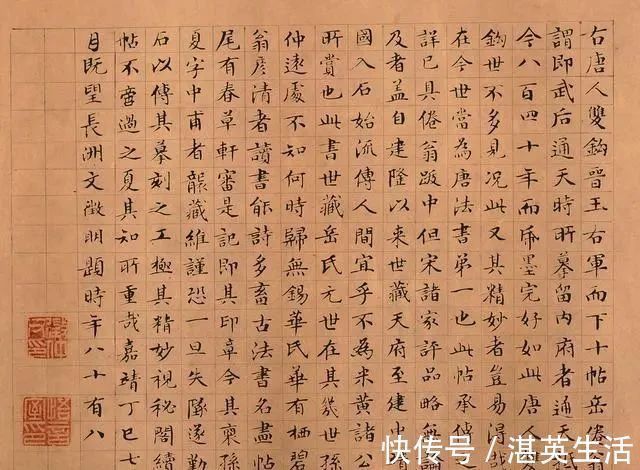 右唐人雙鉤晉王右軍而下十帖岳倦
謂即武后通天時所摹留內府者通天
今八百四十年而紙墨完好如此唐人
鉤世不多見況此又其精妙者豈易得哉
在今世當為唐法書第一也此帖承傳
詳已具倦翁跋中但宋諸家評品略無論
及者蓋自建隆以來世藏天府至建中
國入石始流傳人間宜乎不為米黃諸公
所賞也此書世藏岳氏元世在其幾世
仲遠處不知何時歸無錫華氏華有栖碧
翁彥清者讀書能詩多畜古法書名畫帖
尾有春草軒審是記即其印章今其裔孫
夏字中甫者襲藏維謹恐一旦失墜遂勒
石以傳其摹刻之工極其精妙視秘閣續
帖不啻過之夏其知所重哉嘉靖丁巳七
月既望長洲文徵明題時年八十有八
快传号／湛英生活